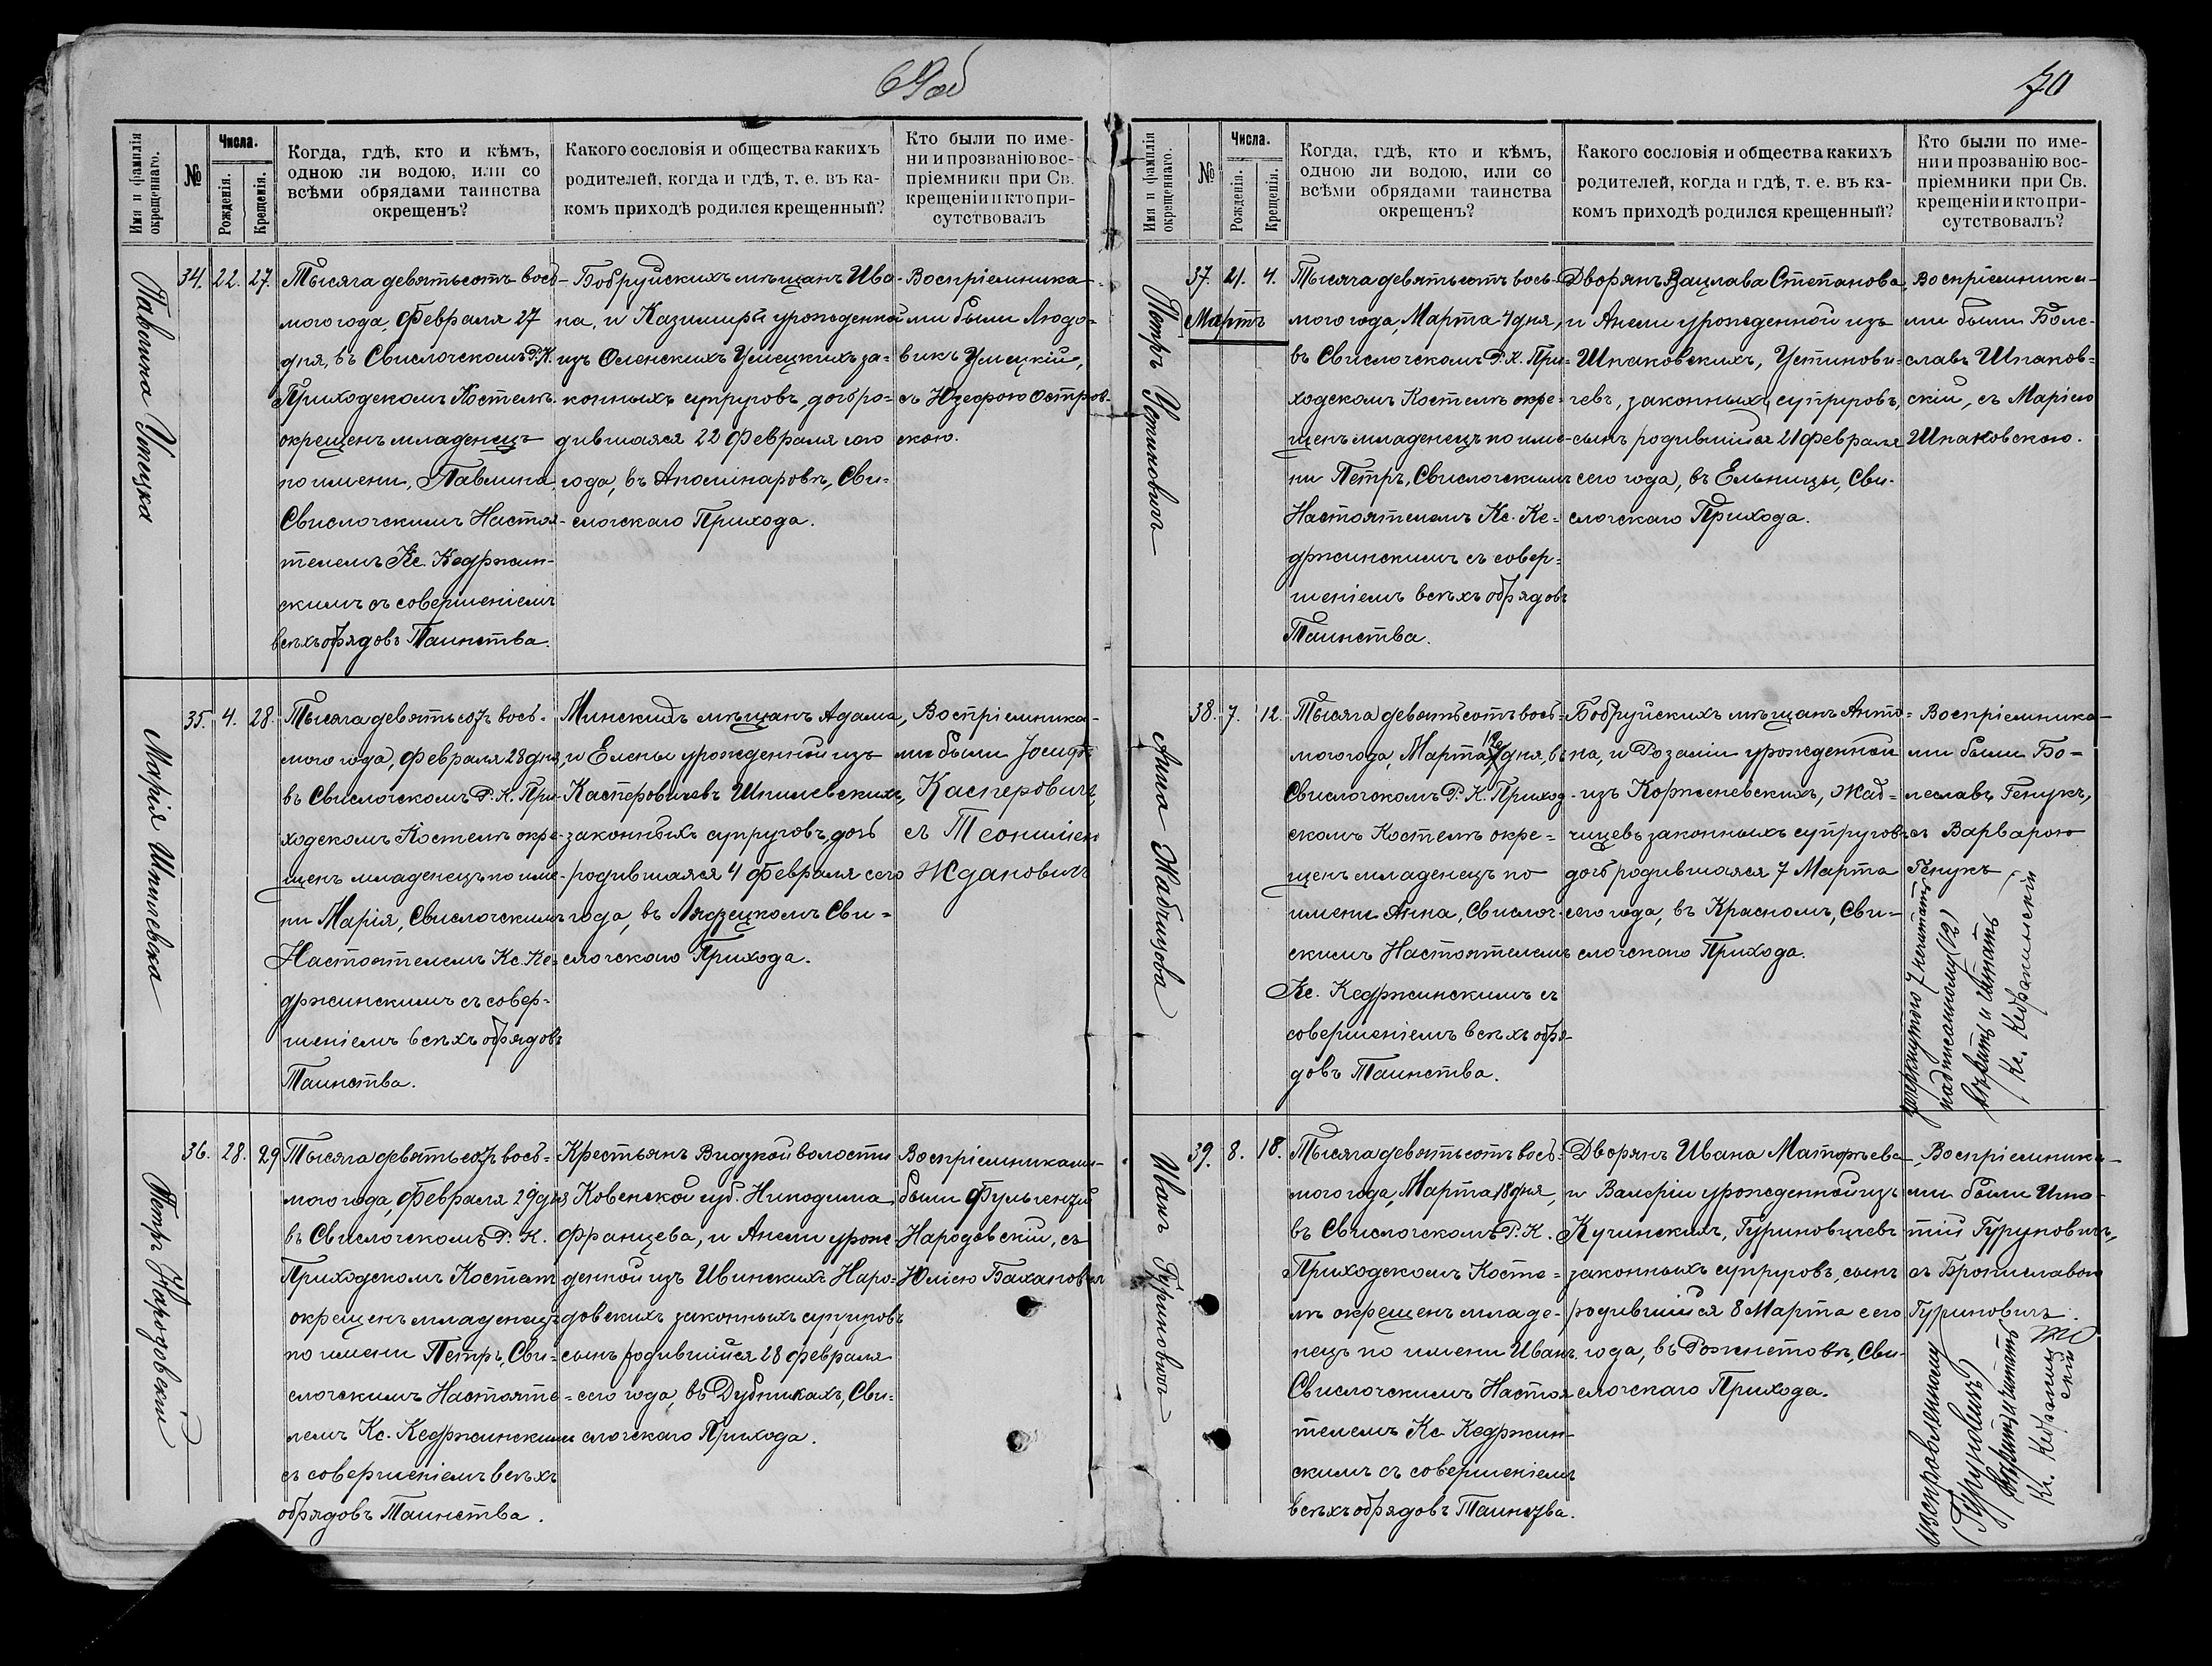 69об
Имя и фамилія окрещеннаго.
№
Числа.
Рожденія.
Крещенія.
Когда, гдѣ, кто и кѣмъ,
одною ли водою, или со
всѣми обрядами таинства
окрещенъ?
Какого сословія и общества какихъ
родителей, когда и гдѣ, т. е. въ ка-
комъ приходѣ родился крещенный?
Кто были по име-
ни и прозванію вос-
пріемники при Св.
крещеніи и кто при-
сутствовалъ
Павлина Умецка
34. 22. 27.
Тысяга девятьсотъ вось-
мого года, Февраля 27
дня, въ Свислочскомъ Р. К.
Приходскомъ Костелѣ
окрещенъ младенецъ
по имени, Павлина,
Свислочскимъ Настоя-
телемъ Кс. Кедржин-
скимъ съ совершеніемъ
всѣхъ обрядовъ Таинства.
Бобруйскихъ мѣщанъ Ива-
на, и Казимиры урожденной
изъ Оленскихъ Умецкихъ за-
конныхъ супруговъ, дочь ро-
дившаяся 22 Февраля сего
года, въ Аполинаровѣ, Сви-
слочскаго Прихода.
Воспріемника-
ми были Людо-
викъ Умецкій,
съ Юзефою Остров-
скою.
Марія Шпилевска
35. 4. 28.
Тысяга девятьсотъ вось-
мого года, Февраля 28 дня,
въ Свислочскомъ Р. К. При-
ходскомъ Костелѣ окре-
щенъ младенецъ по име-
ни Марія, Свислочскимъ
Настоятелемъ Кс. Ке-
држинскимъ съ совер-
шеніемъ всѣхъ обрядовъ
Таинства.
Минскихъ мѣщанъ Адама,
и Елены урожденной изъ
Касперовичевъ Шпилевскихъ,
законныхъ супруговъ, дочь
родившаяся 4 Февраля сего
года, въ Лядзецкомъ Сви-
слочскаго Прихода.
Воспріемника-
ми были Іосифъ
Касперовичъ,
съ Теофилею
Ждановичъ
Петръ Народовски
36. 28. 29
Тысяга девятьсотъ вось-
мого года, Февраля 29 дня,
въ Свислочскомъ Р. К.
Приходскомъ Костелѣ
окрещенъ младенецъ
по имени Петръ, Сви-
слочскимъ Настояте-
лемъ Кс. Кедржинскимъ
съ совершеніемъ всѣхъ
обрядовъ Таинства.
Крестьянъ Видзкой волости
Ковенской губ. Никодима
Францева, и Анели урож-
денной изъ Ивинскихъ Наро-
довскихъ законныхъ супруговъ
сынъ родившийся 28 Февраля
сего года, въ Дубникахъ, Сви-
слочскаго Прихода.
Воспріемниками-
были Фульгенцій
Народовскій, съ
Юліею Бахановичъ
70
Имя и фамилія окрещеннаго.
№
Числа.
Рожденія.
Крещенія.
Когда, гдѣ, кто и кѣмъ,
одною ли водою, или со
всѣми обрядами таинства
окрещенъ?
Какого сословія и общества какихъ
родителей, когда и гдѣ, т. е. въ ка-
комъ приходѣ родился крещенный?
Кто были по име-
ни и прозванію вос-
пріемники при Св.
крещеніи и кто при-
сутствовалъ?
Петръ Устиновичъ
37. 21. 4.
Мартъ
Тысяга девятьсотъ вось-
мого года, Марта 4 дня,
въ Свислочскомъ Р. К. При-
ходскомъ Костелѣ окре-
щенъ младенецъ по име-
ни Петръ, Свислочскимъ
Настоятелемъ Кс. Ке-
држинскимъ съ совер-
шеніемъ всѣхъ обрядовъ
Таинства.
Дворянъ Вацлава Степанова,
и Анели урожденной изъ
Шпаковскихъ, Устинови-
чевъ, законныхъ супруговъ,
сынъ родившийся 21 Февраля
сего года, въ Ельницы, Сви-
слочскаго Прихода.
Воспріемника-
ми были Боле-
славъ Шпаков-
скій, съ Маріею
Шпаковскою.
Анна Жабчицова
38. 7. 12.
Тысяга девятьсотъ вось-
мого года, Марта 12 дня, въ
Свислочскомъ Р. К. Приход-
скомъ Костелѣ окре-
щенъ младенецъ по
имени Анна, Свислоч-
скимъ Настоятелемъ
Кс. Кедржинскимъ съ
совершеніемъ всѣхъ обря-
довъ Таинства.
Бобруйскихъ мѣщанъ Анто-
на, и Розаліи урожденной
изъ Корженевскихъ, Жаб-
чицевъ законныхъ супруговъ
дочь родившаяся 7 Марта
сего года, въ Красномъ, Сви-
слочскаго Прихода.
Воспріемника-
ми были Бо-
леславъ Генукъ,
съ Варварою
Генукъ
зачеркнутого 7 нечитать
надписанному (12)
вѣрить и читать
Кс. Кедржинскій
Иванъ Гуриновичъ
39. 8. 18.
Тысяга девятьсотъ вось-
мого года, Марта 18 дня,
въ Свислочскомъ Р. К.
Приходскомъ Косте-
лѣ окрещенъ младе-
нецъ по имени Иванъ.
Свислочскимъ Настоя-
телемъ Кс Кедржин-
скимъ съ совершеніемъ
всѣхъ обрядовъ Таинства.
Дворянъ Ивана Матфѣева,
и Валеріи урожденной изъ
Кучинскихъ, Гуриновичевъ
законныхъ супруговъ, сынъ
родившийся 8 Марта сего
года, въ Рожнетовѣ, Сви-
слочскаго Прихода.
Воспріемника-
ми были Игна-
тій Гуруновичъ,
съ Брониславою
Гуриновичъ.
Исправленному
(Гуруновичъ)
вѣрить и читать
Кс. Кедржин
скій